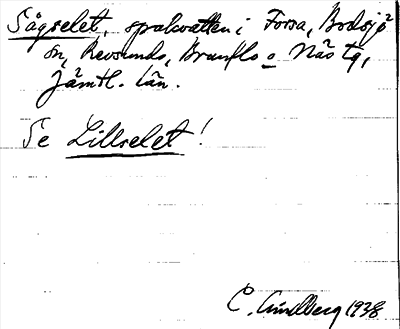 Sågselet, spakvatten i Forsa, Bodsjö
sn, Revsunds, Brunflo o Näs tg,
Jämtl. län.
Se Lillselet!
C. Lindberg 1938